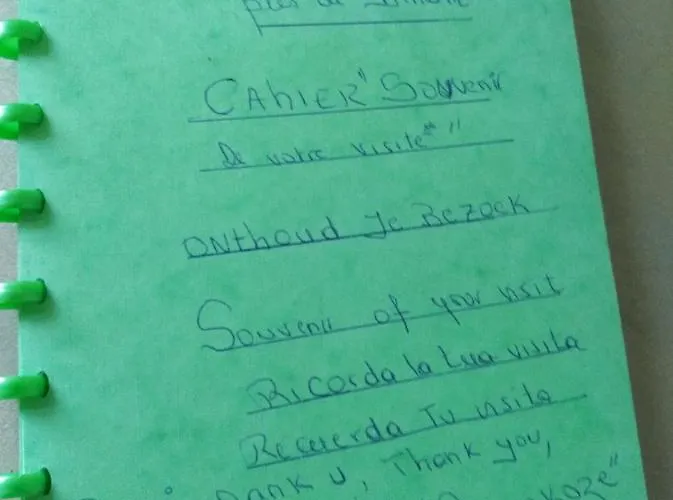 CAhIER "Souvenir
De votre visite" "
ONthoud Je Bezoek
Souvenir of your visit
Ricorda la tua visita
Recuerda Tu visita
Dank U, Thank you,